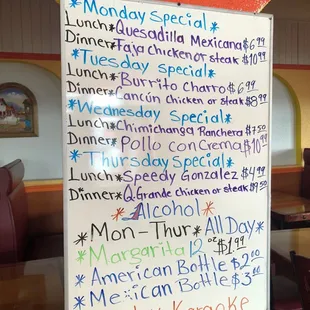 *Monday Special*
Lunch*Quesadilla Mexicana $6.99
Dinner*Faja chicken or steak $10.99
*Tuesday special*
Lunch*Burrito Charro $6.99
Dinner*Cancún chicken or steak $8.99
*Wednesday Special*
Lunch*Chimichanga Ranchera $7.50
Dinner*Pollo con Crema $10.99
*Thursday Special*
Lunch*Speedy Gonzalez $4.99
Dinner*Q. Grande chicken or steak $9.50
*Alcohol*
*Mon-Thur*All Day
*Margarita 12 oz $1.99*
*American Bottle $2.00
*Mexican Bottle $3.00
Karaoke